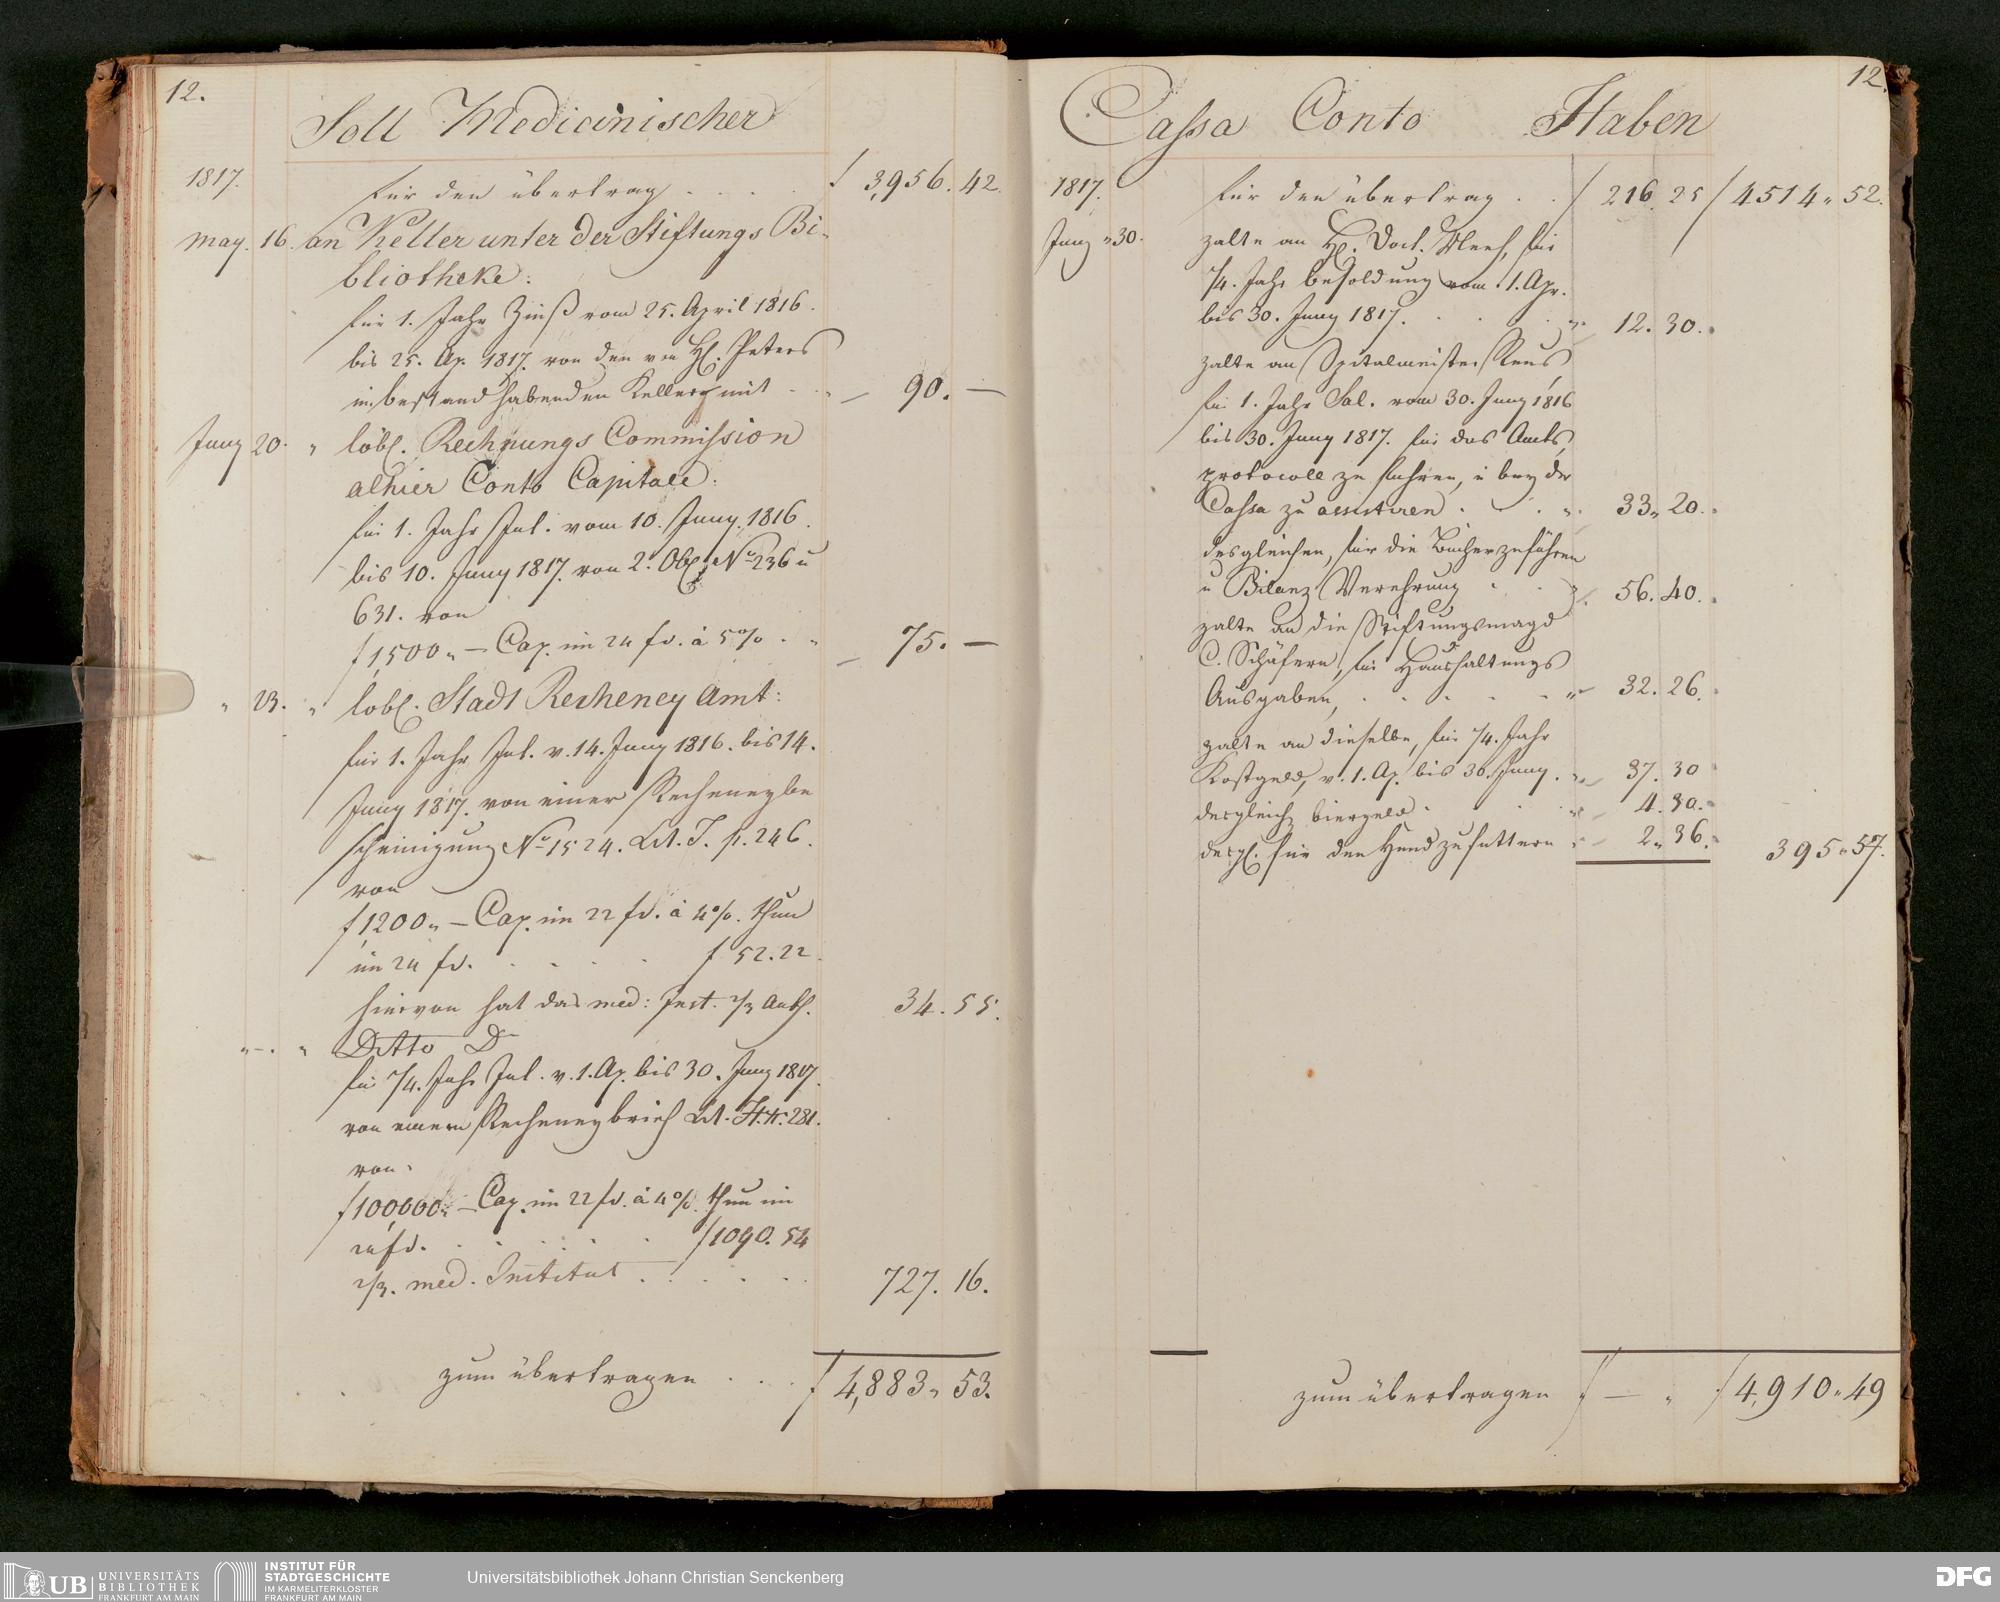 12.
Soll Medicinischer
1817.
für den übertrag . . . . f 3,956. 42.
may. 16. an Keller unter der Stiftungs Bi-
bliotheke:
für 1. Jahr Zinß vom 25. April 1816.
bis 25. Ap. 1817. von den von H. Peters
in bestand habenden Keller mit - - 90. —
Juny 20. " löbl. Rechnungs Commission
alhier Conto Capitale:
für 1. Jahr Int. vom 10. Juny. 1816.
bis 10. Juny 1817. von 2. Obl. No 236 u
631. von
f 1,500 „ — Cap. im 24 fs. à 5% . „ 75. —
" 23. " löbl. Stadt Recheney Amt:
für 1. Jahr Int. v. 14. Juny 1816. bis 14.
Juny 1817. von einer Recheneybe
scheinigung No 1524. Lit. J. p. 246.
von
f 1200 „ — Cap. im 22 fs. à 4%. thun
im 24 fs. . . . . f 52. 22.
hiervon hat das med: Inst. 2/3 Anth. 34. 55.
" - . " Ditto Do
für 1/4. Jahr Int. v. 1. Ap. bis 30. Juny 1817.
von einem Recheneybrief Lit. H. 281.
von.
f 100,000 „ — Cap. im 22 fs. à 4%. thun im
24 fs. . . . . . f 1090. 54
2/3. med. Institut . . . . . 727. 16.
zum übertragen . . . f 4,883 „ 53.
12.
Cassa Conto Haben
1817.
für den übertrag . . f 216. 25 f 4514 „ 52.
Juny „ 30. zalte an H. Doct. für
1/4. Jahr besoldung vom 1. Apr.
bis 30. Juny 1817. . . . „ 12. 30.
zalte an Spitalmeister Reus,
für 1. Jahr Sal. vom 30. Juny 1816
bis 30. Juny 1817. für das Amts,
protocoll zu führen, u bey der
Cassa zu assistiren . . . „ 33 „ 20.
desgleichen, für die Bücher zu führen
u Bilanz Verehrung . . „ 56. 40.
zalte an die Stiftungsmagd
C. Schäfern, für Haushaltungs
Ausgaben, . . . . . „ 32. 26.
zalte an dieselbe, für 1/4. Jahr
Kostgeld, v. 1. Ap. bis 30. Juny . „ 37. 30
desgleich. biergeld . . . „ 4. 30.
desgl. für den Hund zu futtern „ 2 „ 36. 395 „ 57.
zum übertragen f — „ f 4,910 „ 49
UB UNIVERSITÄTS
BIBLIOTHEK
FRANKFURT AM MAIN
INSTITUT FÜR
STADTGESCHICHTE
IM KARMELITERKLOSTER
FRANKFURT AM MAIN
Universitätsbibliothek Johann Christian Senckenberg
DFG